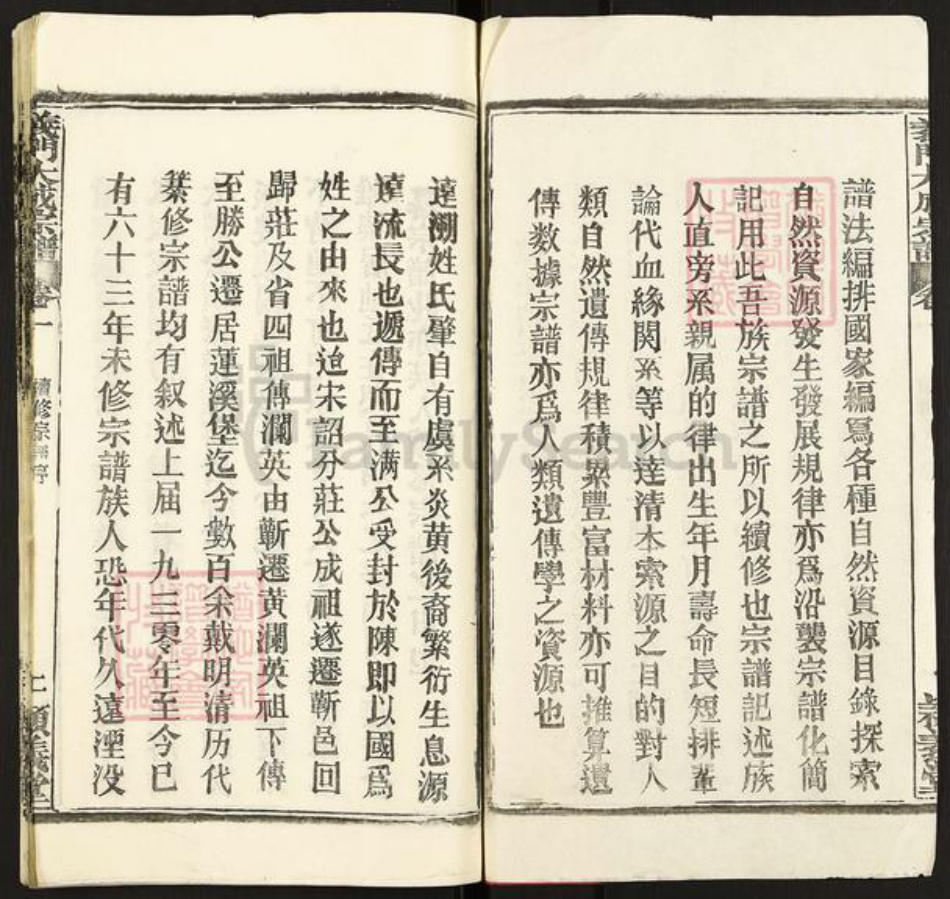 譜法編排國家編寫各種自然資源目錄探索
自然資源發生發展規律亦爲沿襲宗譜化簡
記用此吾族宗譜之所以續修也宗譜記述族
人直旁系親属的律出生年月壽命長短排輩
論代血緣関系等以達清本索源之目的對人
類自然遺傳規律積累豐富材料亦可推算遺
傳数據宗譜亦爲人類遺傳學之資源也
義門大成宗譜
卷一
續修宗譜序
遠溯姓氏肇自有虞系炎黄後裔繁衍生息源
遠流長也遞傳而至满公受封於陳即以國爲
姓之由來也迨宋詔分莊公成祖遂遷蘄邑回
歸莊及省四祖傳瀾英由蘄遷黄瀾英祖下傳
至勝公遷居蓮溪堡迄今數百余戴明清历代
纂修宗譜均有叙述上届一九三零年至今已
有六十三年未修宗譜族人恐年代久遠湮没
FamilySearch